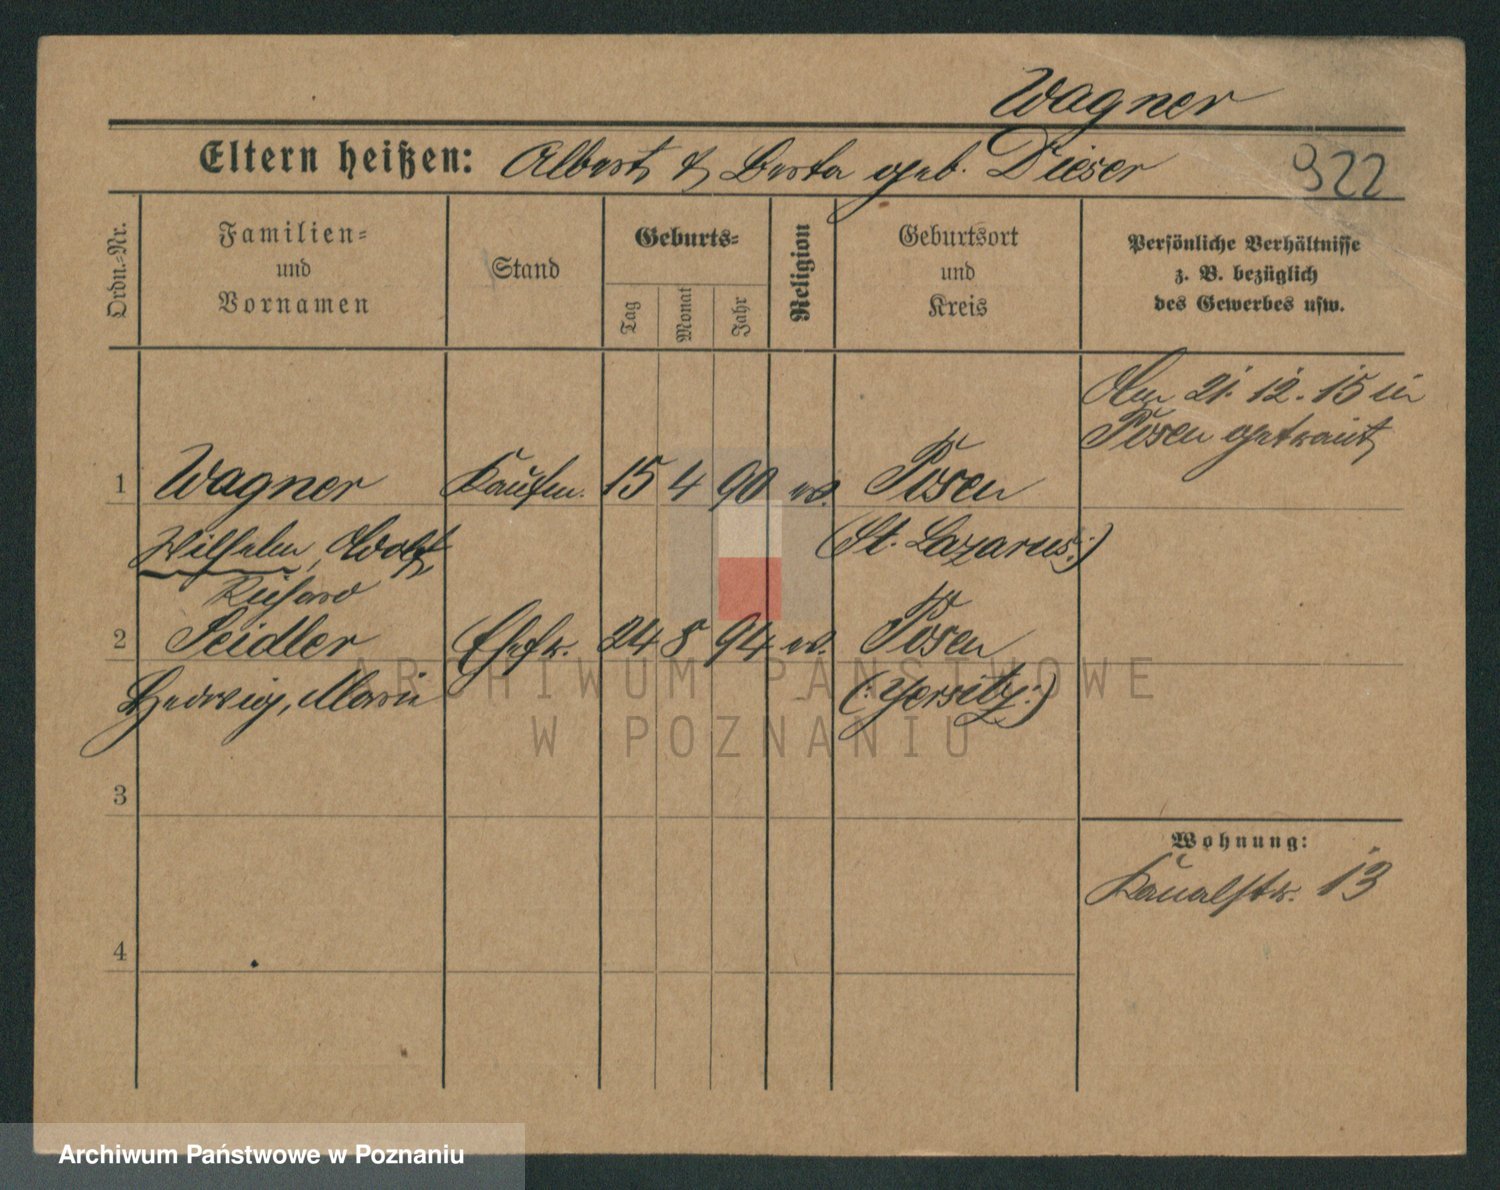 Wagner
Eltern heißen: Albert & Berta geb. Dieser
922
Ordn.-Nr.
Familien-
und
Vornamen
Stand
Geburts-
Tag
Monat
Jahr
Religion
Geburtsort
und
Kreis
Persönliche Verhältnisse
z. B. bezüglich
des Gewerbes usw.
Am 21.12.15 in
Posen getraut
1 Wagner Kaufm. 15 4 90 ev. Posen
Wilhelm, Adolf, (St. Lazarus:)
Richard
2 Seidler Ehefr. 24 8 94 ev. Posen
Hedwig, Marie (:Yersitz:)
ARCHIWUM PAŃSTWOWE
W POZNANIU
3
Wohnung:
Kanalstr. 13
4
Archiwum Państwowe w Poznaniu